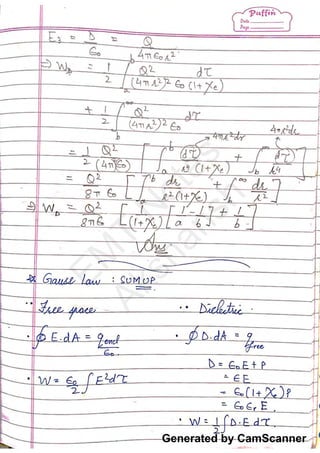 Puffin
Date
Page
E3 = D/ϵ0 = Q/4πϵ0r²
⇒ WD = 1/2 ∫a^b Q²/((4πr²)² ϵ0(1+χe)) dτ
+ 1/2 ∫b^∞ Q²/((4πr²)² ϵ0) dτ
4πr²dr 4πr²dr
= 1/2 Q²/(4π)ϵ0 [ ∫a^b (dτ)/(r⁴(1+χe)) + ∫b^∞ (dτ)/r⁴ ]
= Q²/8πϵ0 [ ∫a^b dr/(r²(1+χe)) + ∫b^∞ dr/r² ]
⇒ WD = Q²/8πϵ0 [ 1/(1+χe) [ 1/a - 1/b ] + 1/b ]
Ans.
Gauss law : SUM UP
Free space •• Dielectric
• ∮E.dA = qencl/ϵ0 • ∮D.dA = qfree
D = ϵ0E + P
• W = ϵ0/2 ∫E²dτ = ϵE
= ϵ0(1+χ)P
= ϵ0ϵr E.
• W = 1/2 ∫D.E dτ.
Generated by CamScanner